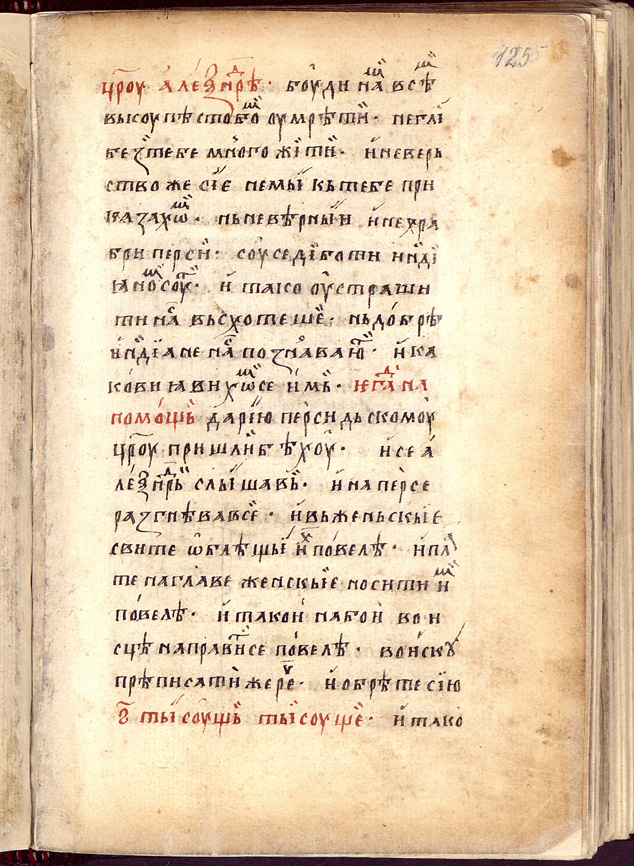 125
цр҃оу але́ѯнⷣрѣ · боуди на́ⷨ всѣⷨ
высоуп ѣстоⷨбо оумрѣти · негли
беꙁ тебе много жити · и невѣрь
ство же сїе немы кь тебе при
каꙁахѡⷨ · нь невѣрныи и нехра
бри перси · соуседи боти инди
ꙗноⷨ соуⷮ · и тако оустраши
ти на́ⷭ вьсхотеше · нь добрѣ
индїане на́ⷭ поꙁнаваюⷮ · и ка
кови ꙗвихѡⷨ се имь · ѥгаⷣ на
помощь дарїю персидьскомоу
цр҃оу пришли бѣхоу · и се а
леѯнⷣрь слышавь · и на персе
раꙁгнѣва все · и вь женьскые
свите ѡблѣщы иⷯ повелѣ · и пла
те на главе женскые носити иⷨ
повелѣ · и тако и на бои вои
сце направити се повелѣ · воиску
прѣписати же рече · и обрѣте сїю
҂ѕ҃ тысоущь тысоуще · и тако